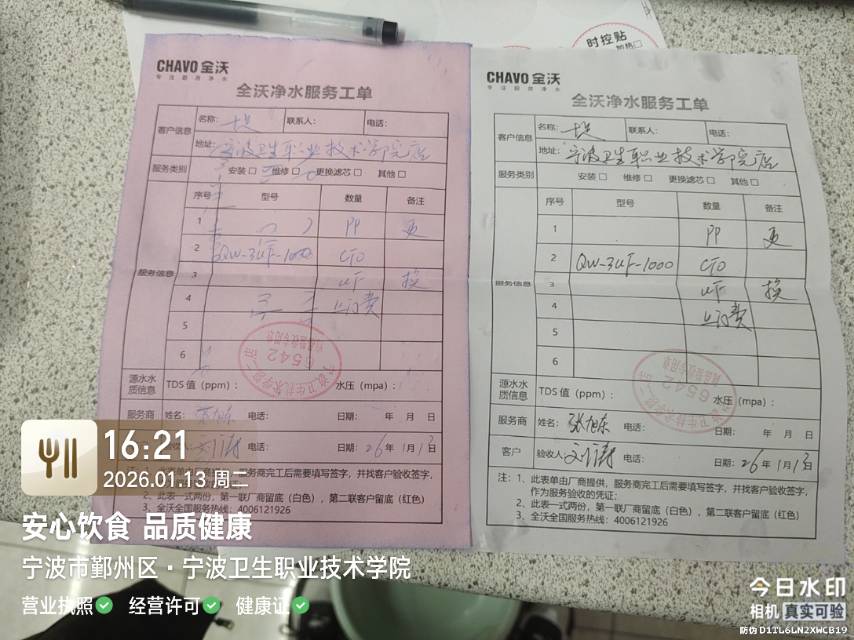 时控贴
CHAVO 全沃
全沃净水服务工单
客户信息
名称：
联系人：
电话：
地址：宁波卫生职业技术学院店
服务类别
安装 □ 维修 □ 更换滤芯 □ 其他 □
服务信息
序号 型号 数量 备注
1 PP 更
2 QW-3UF-1000 CTO
3 UF 换
4 上门费
5
6
源水水质信息
TDS 值（ppm）：
水压（mpa）：
服务商
姓名：张旭东 电话：
日期： 年 月 日
刘涛 电话：
日期：26年1月13日
服务商完工后需要填写签字，并找客户验收签字，
2、此表一式两份，第一联厂商留底（白色），第二联客户留底（红色）
3、全沃全国服务热线：4006121926
CHAVO 全沃
全沃净水服务工单
客户信息
名称：
联系人：
电话：
地址：宁波卫生职业技术学院店
服务类别
安装 □ 维修 □ 更换滤芯 □ 其他 □
服务信息
序号 型号 数量 备注
1 PP 更
2 QW-3UF-1000 CTO
3 UF 换
4 上门费
5
6
6542
源水水质信息
TDS 值（ppm）：
水压（mpa）：
服务商
姓名：张旭东 电话：
日期： 年 月 日
客户
验收人：刘涛 电话：
日期：26年1月13日
注：1、此表单由厂商提供，服务商完工后需要填写签字，并找客户验收签字，
作为服务验收的凭证；
2、此表一式两份，第一联厂商留底（白色），第二联客户留底（红色）
3、全沃全国服务热线：4006121926
16:21
2026.01.13 周二
安心饮食 品质健康
宁波市鄞州区·宁波卫生职业技术学院
营业执照 经营许可 健康证
今日水印
相机 真实可验
防伪 D1TL6LN2XWCB19